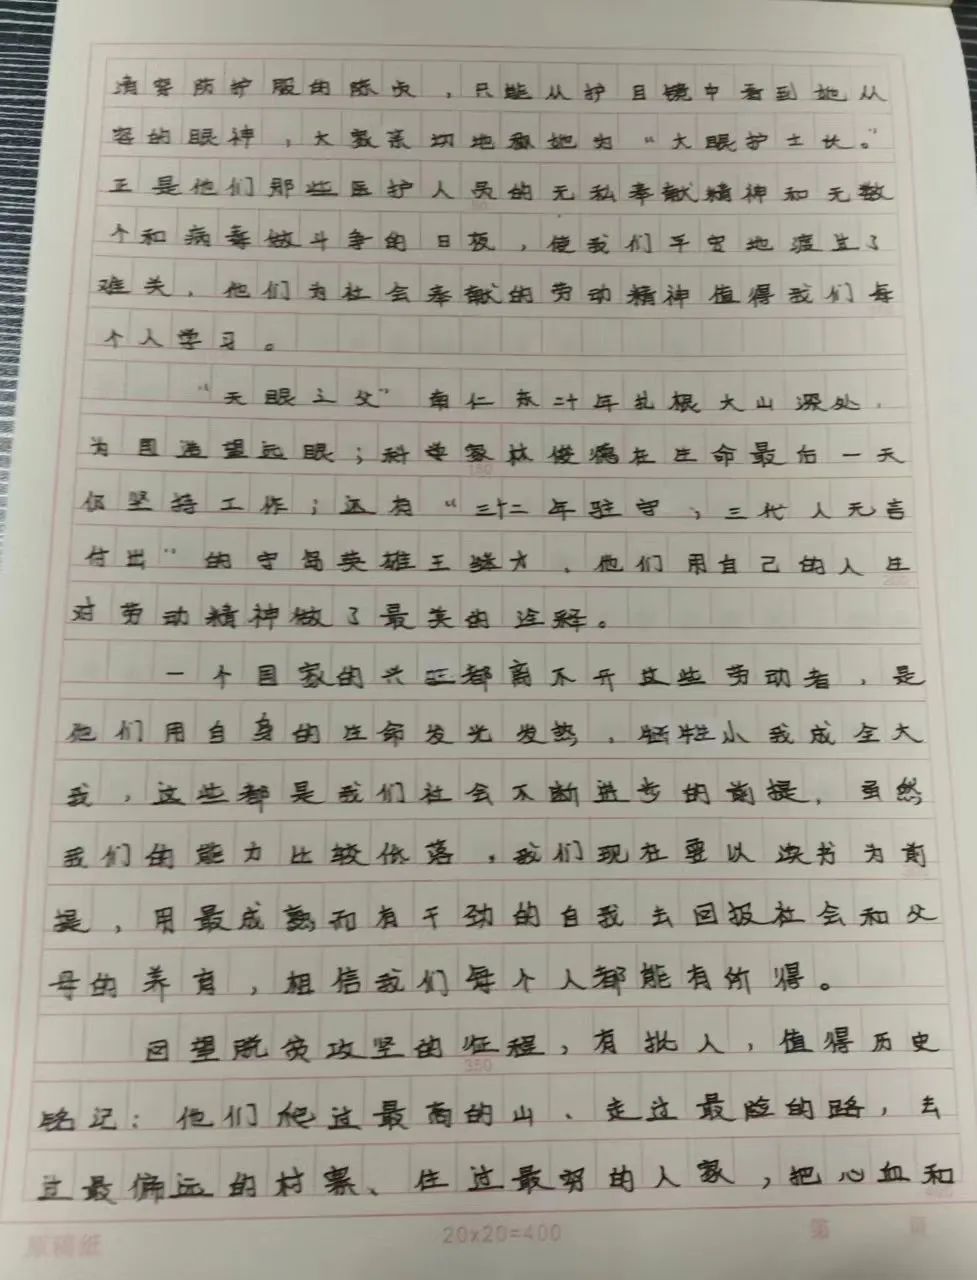 清穿防护服的陈贞，只能从护目镜中看到她从
容的眼神，大家亲切地称她为“大眼护士长。”
正是他们那些医护人员的无私奉献精神和无数
个和病毒做斗争的日夜，使我们平安地渡过了
难关，他们为社会奉献的劳动精神值得我们每
个人学习。
“天眼之父”南仁东二十年扎根大山深处，
为国造望远眼；科学家林俊德在生命最后一天
仍坚持工作；还有“三十二年驻守，三代人无言
付出”的守岛英雄王继才，他们用自己的人生
对劳动精神做了最美的诠释。
一个国家的兴旺都离不开这些劳动者，是
他们用自身的生命发光发热，牺牲小我成全大
我，这些都是我们社会不断进步的前提，虽然
我们的能力比较低落，我们现在要以读书为前
提，用最成熟而有干劲的自我去回报社会和父
母的养育，相信我们每个人都能有所得。
回望脱贫攻坚的征程，有批人，值得历史
铭记：他们爬过最高的山、走过最险的路，去
过最偏远的村寨、住过最穷的人家，把心血和
150
200
350
400
20×20=400
原稿纸
第 页